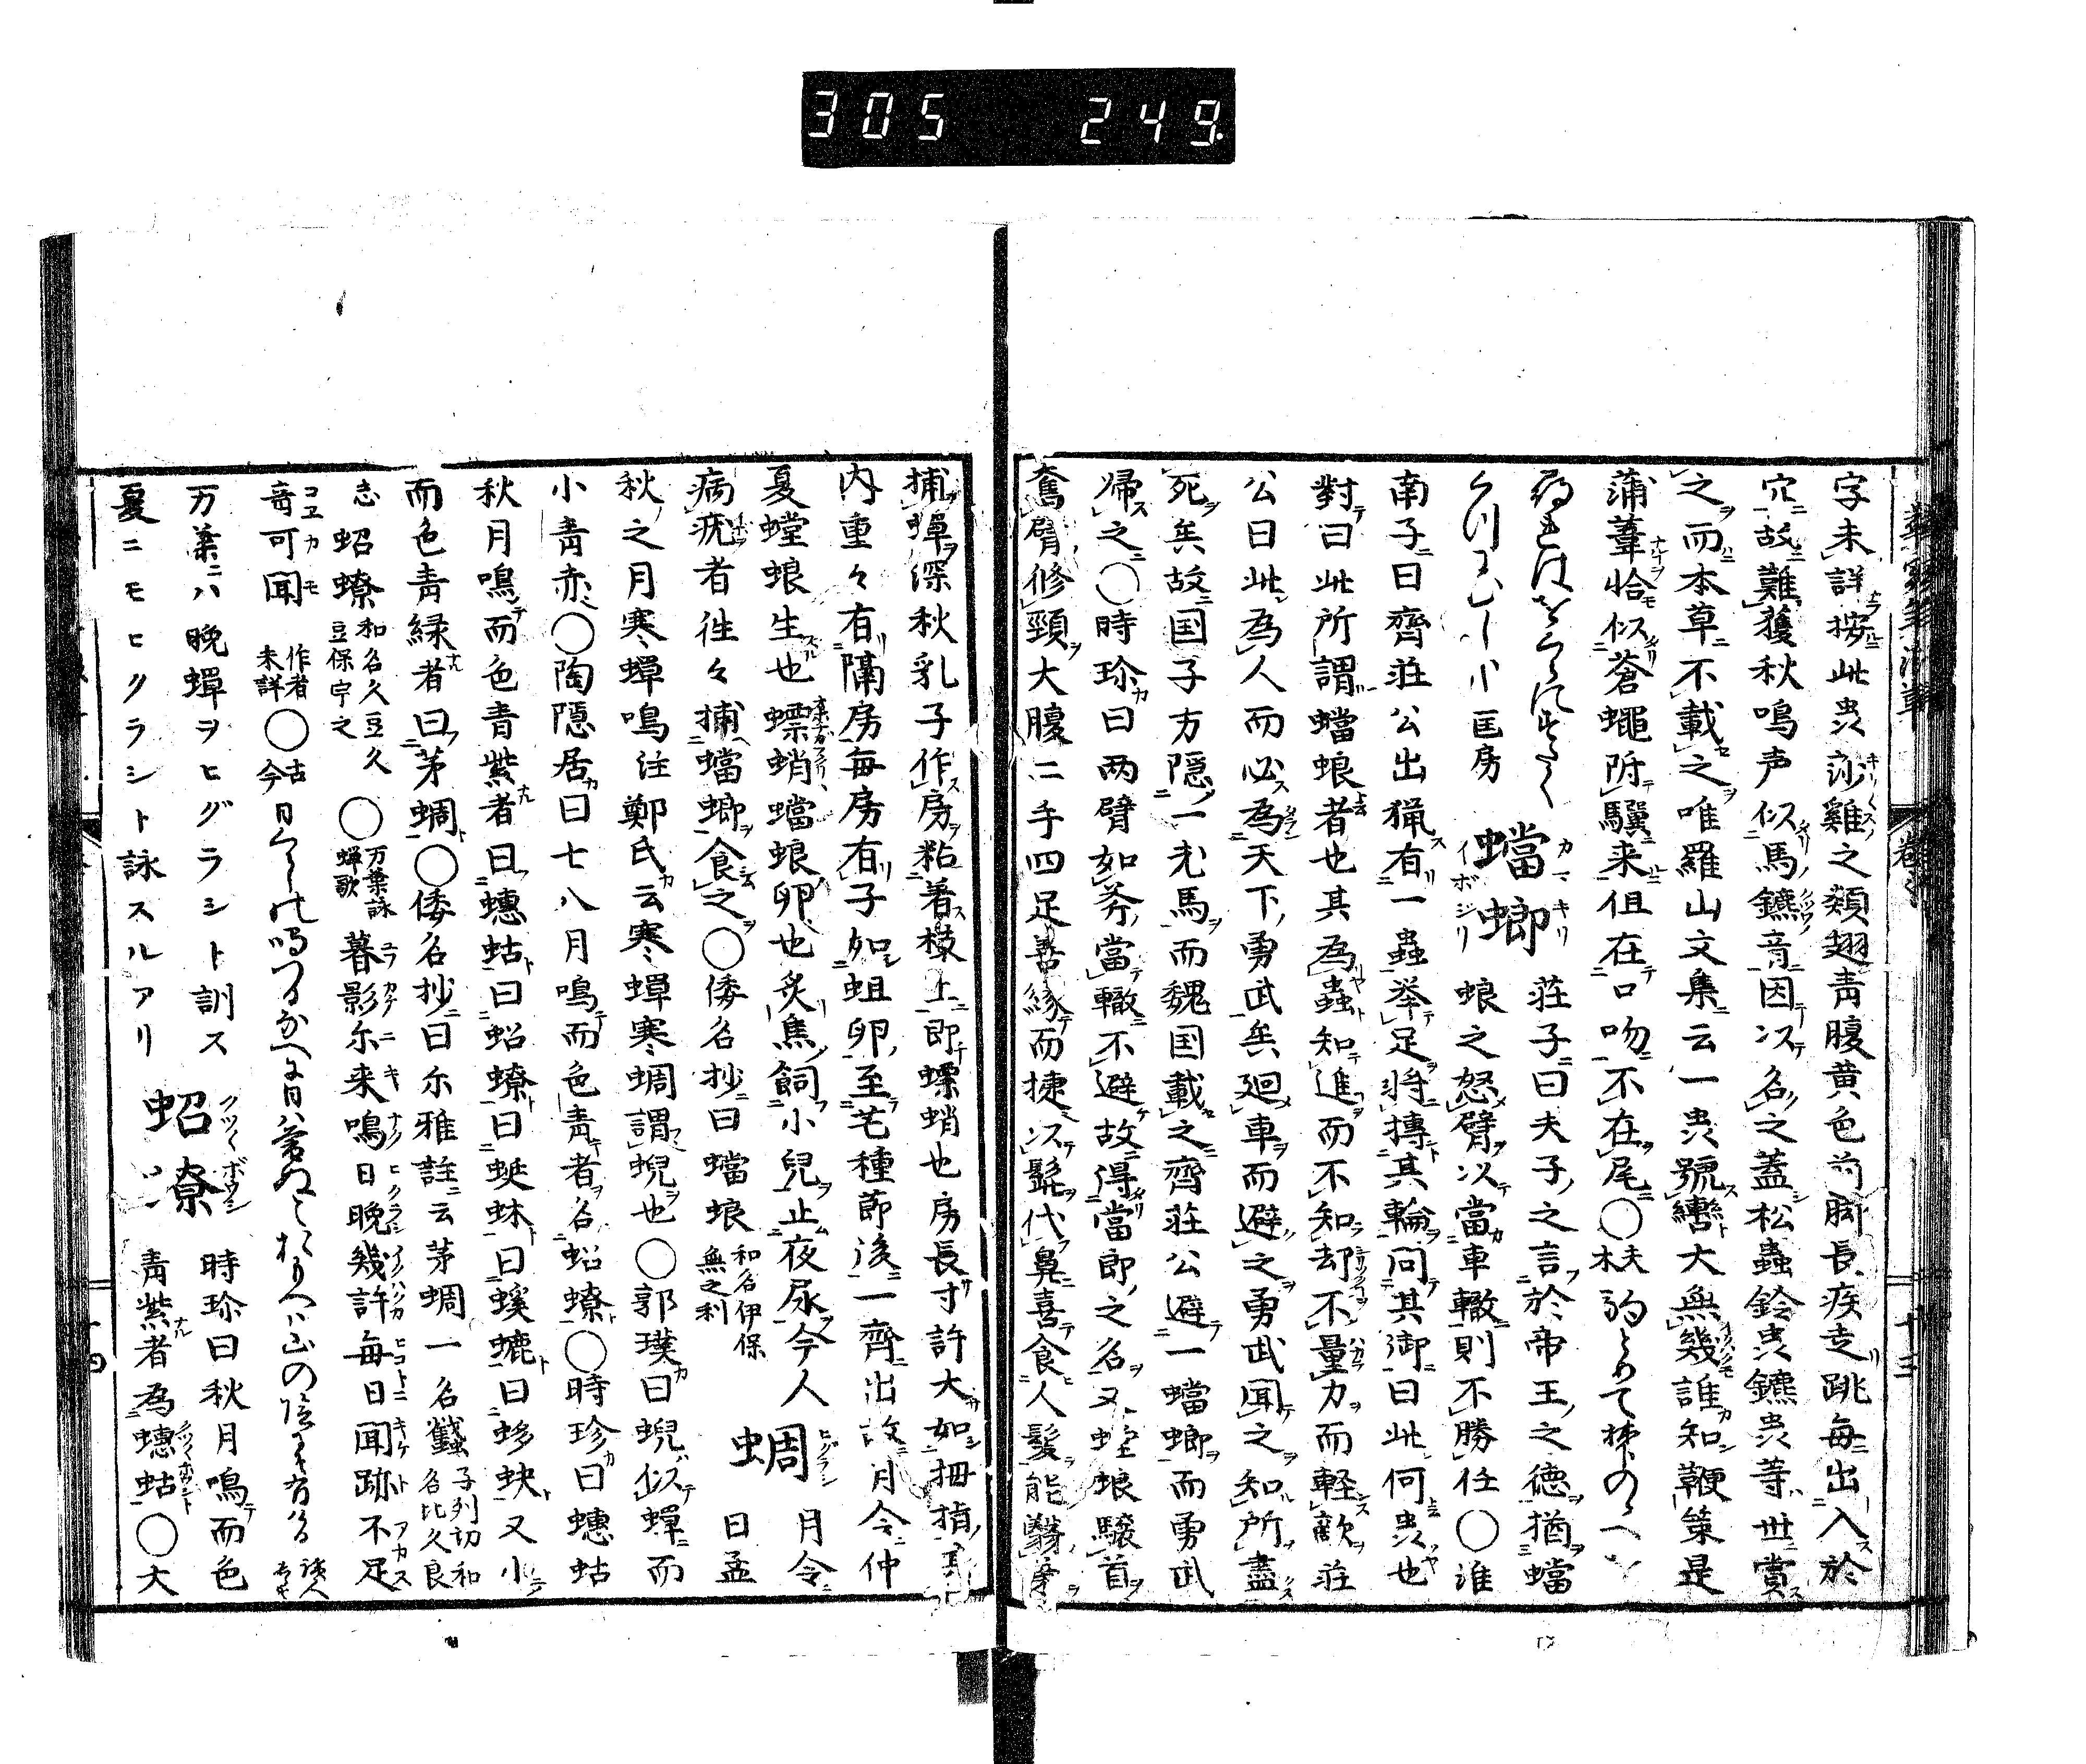 305 249.
字未詳按此虫沙雞之類翅青腹黄色前脚長疾走跳毎出入於
穴故難獲秋鳴声似馬鑣音因以名之蓋松蟲鈴虫鑣虫等世賞
之而本草不載之唯羅山文集云一虫號轡大無幾誰知鞭策是
蒲葦恰似蒼蠅附驥来但在口吻不在尾〇夫木
匡房
蟷蜋 カマキリ イボジリ
荘子曰夫子之言於帝王之徳猶蟷
蜋之怒臂以當車轍則不勝任〇淮
南子曰齊莊公出猟有一蟲挙足将摶其輪問其御曰此何虫也
對曰此所謂蟷蜋者也其為蟲知進而不知却不量力而軽敵荘
公曰此為人而必為天下勇武矣廻車而避之勇武聞之知所盡
死矣故国子方隠一老馬而魏国載之齊莊公避一蟷螂而勇武
帰之〇時珍曰両臂如斧當轍不避故得當郎之名又蟷蜋驤首
奮臂修頸大腹二手四足善縁而捷以髭代鼻喜食人髮能翳葉
捕蟬深秋乳子作房粘着枝上即螵蛸也房長寸許大如拇指其
内重々有隔房毎房有子如蛆卵至芒種節後一齊出故月令仲
夏螳蜋生也螵蛸蟷蜋卵也炙焦飼小兒止夜尿今人
病疣者徃々捕蟷螂食之〇倭名抄曰蟷蜋 和名伊保無之利
蜩 ヒグラシ
月令
曰孟
秋之月寒蟬鳴注鄭氏云寒蟬寒蜩謂蜺也〇郭璞曰蜺似蟬而
小青赤〇陶隠居曰七八月鳴而色青者名蛁蟟〇時珍曰蟪蛄
秋月鳴而色青紫者曰蟪蛄曰蛁蟟曰蜓蚞曰螇螰曰蛥蚗又小
而色青緑者曰茅蜩〇倭名抄曰尓雅註云茅蜩一名蠽 子列切和名比久良
志 蛁蟟 和名久豆久豆保宇之 〇万葉詠蟬歌 暮影尓来鳴日晩幾許毎日聞跡不足
音可聞 作者未詳 〇古今
万葉ニハ晩蟬ヲヒグラシト訓ス
夏ニモヒクラシト詠スルアリ
蛁蟟 クツ〱ボウシ
時珍曰秋月鳴而色
青紫者為蟪蛄〇大